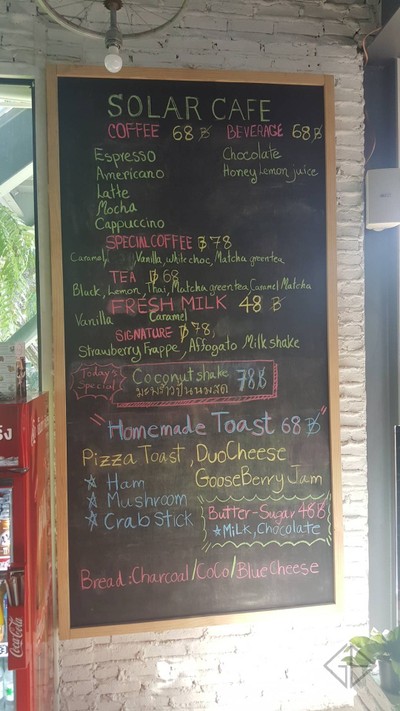 SOLAR CAFE
COFFEE 68 ฿ BEVERAGE 68 ฿
Espresso Chocolate
Americano HoneyLemon juice
Latte
Mocha
Cappuccino
SPECIAL COFFEE ฿ 78
Caramel, Vanilla, white choc, Matcha greentea
TEA ฿ 68
Black, Lemon, Thai, Matcha greentea, Caramel Matcha
FRESH MILK 48 ฿
Vanilla Caramel
SIGNATURE ฿ 78
Strawberry Frappe / Affogato Milkshake
Today's Special
Coconut shake 78 ฿
มะพร้าวปั่นนมสด
"Homemade Toast 68 ฿"
Pizza Toast, DuoCheese
☆ Ham GooseBerry Jam
☆ Mushroom
☆ Crab Stick
Butter-Sugar 48 ฿
★ Milk, Chocolate
Bread: Charcoal / CoCo / BlueCheese
Coca-Cola